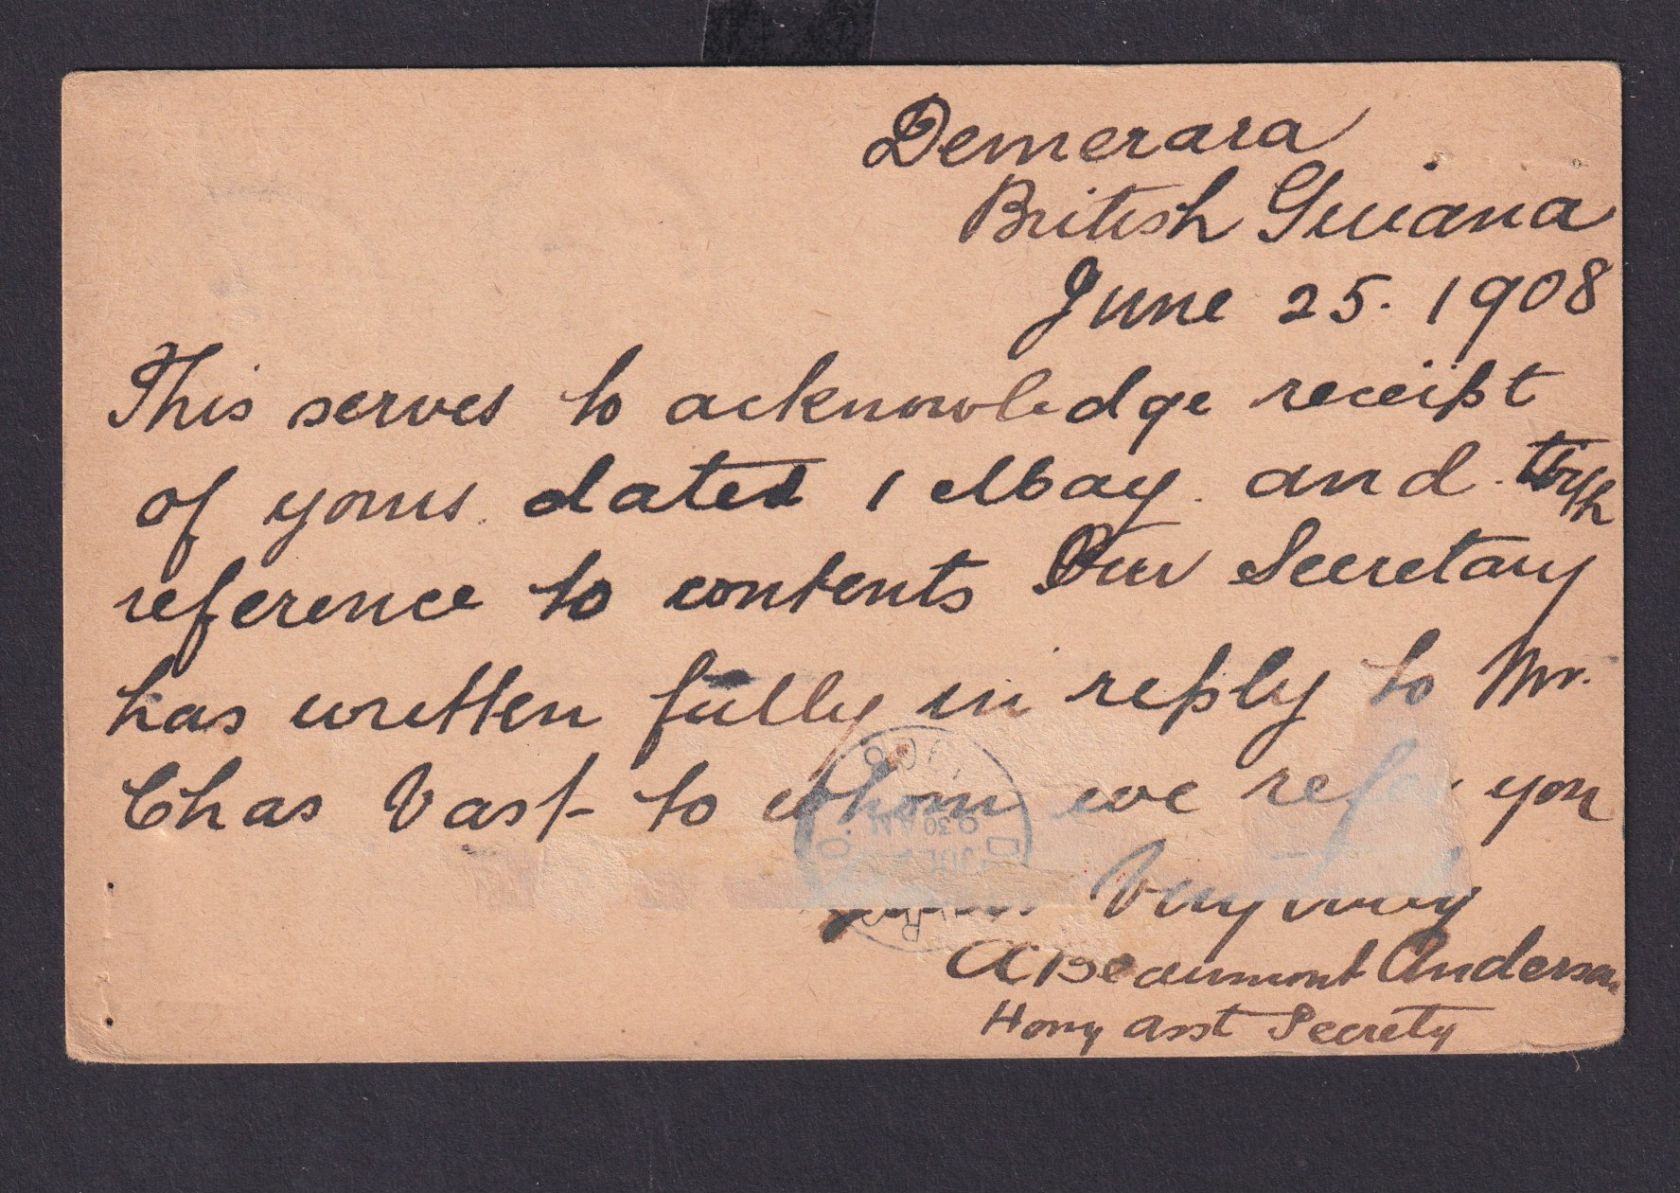 Demerara
British Guiana
June 25. 1908
This serves to acknowledge receipt
of yours dated 1 May. and with
reference to contents Our Secretary
has written fully in reply to Mr.
Chas Vast to whom we refer you
Yours Very truly
A Beaumont Anderson
Hony Asst Secrety
9 30 AM